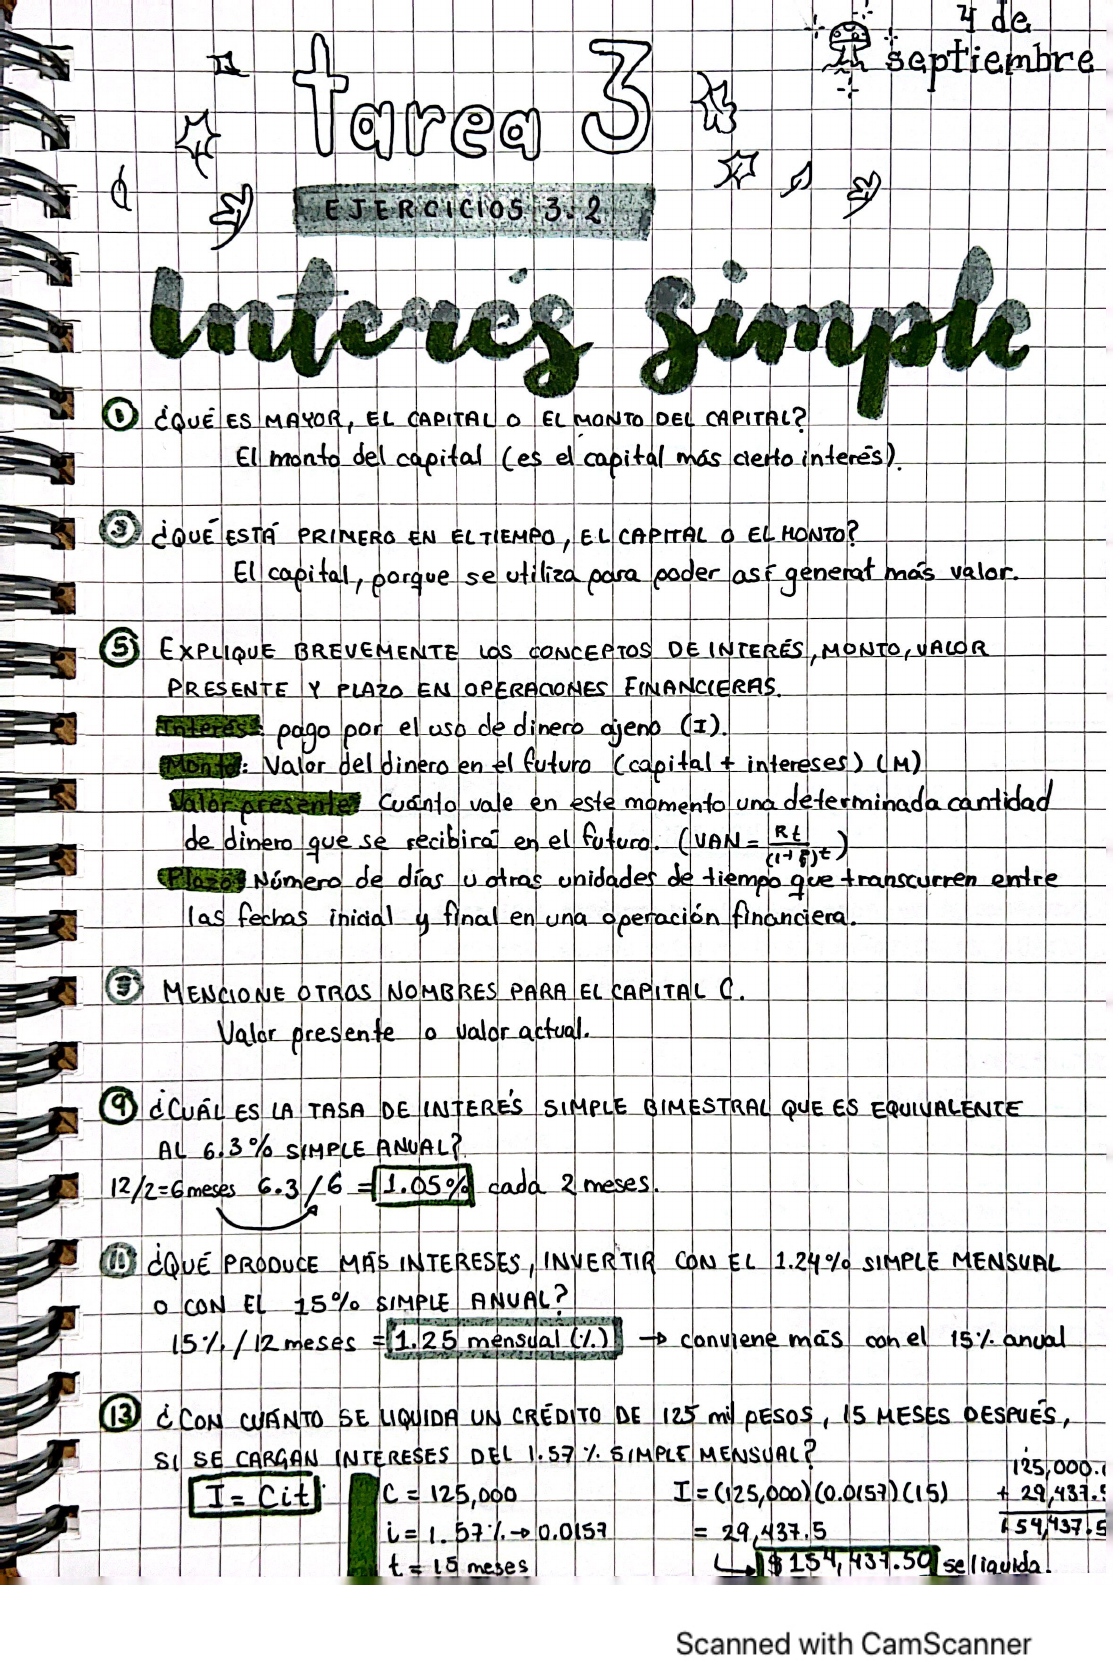 4 de
septiembre
tarea 3
EJERCICIOS 3.2
Interés simple
1 ¿QUÉ ES MAYOR, EL CAPITAL O EL MONTO DEL CAPITAL?
El monto del capital (es el capital más cierto interés).
3 ¿QUÉ ESTÁ PRIMERO EN EL TIEMPO, EL CAPITAL O EL MONTO?
El capital, porque se utiliza para poder así generat más valor.
5 EXPLIQUE BREVEMENTE LOS CONCEPTOS DE INTERÉS, MONTO, VALOR
PRESENTE Y PLAZO EN OPERACIONES FINANCIERAS.
Interés: pago por el uso de dinero ajeno (I).
Monto: Valor del dinero en el futuro (capital + intereses) (M)
Valor presente: Cuánto vale en este momento una determinada cantidad
de dinero que se recibirá en el futuro. (VAN = Rt/(1+i)^t)
Plazo: Número de días u otras unidades de tiempo que transcurren entre
las fechas inicial y final en una operación financiera.
7 MENCIONE OTROS NOMBRES PARA EL CAPITAL C.
Valor presente o valor actual.
9 ¿CUÁL ES LA TASA DE INTERÉS SIMPLE BIMESTRAL QUE ES EQUIVALENTE
AL 6.3% SIMPLE ANUAL?
12/2=6 meses 6.3/6 = 1.05% cada 2 meses.
11 ¿QUÉ PRODUCE MÁS INTERESES, INVERTIR CON EL 1.24% SIMPLE MENSUAL
O CON EL 15% SIMPLE ANUAL?
15%/12 meses = 1.25 mensual (%) → conviene más con el 15% anual
13 ¿CON CUÁNTO SE LIQUIDA UN CRÉDITO DE 125 mil PESOS, 15 MESES DESPUÉS,
SI SE CARGAN INTERESES DEL 1.57% SIMPLE MENSUAL?
I = Cit
C = 125,000
i = 1.57% → 0.0157
t = 15 meses
I = (125,000)(0.0157)(15)
= 29,437.5
↳ $154,437.50 se liquida.
125,000.
+ 29,437.5
154,437.5
Scanned with CamScanner